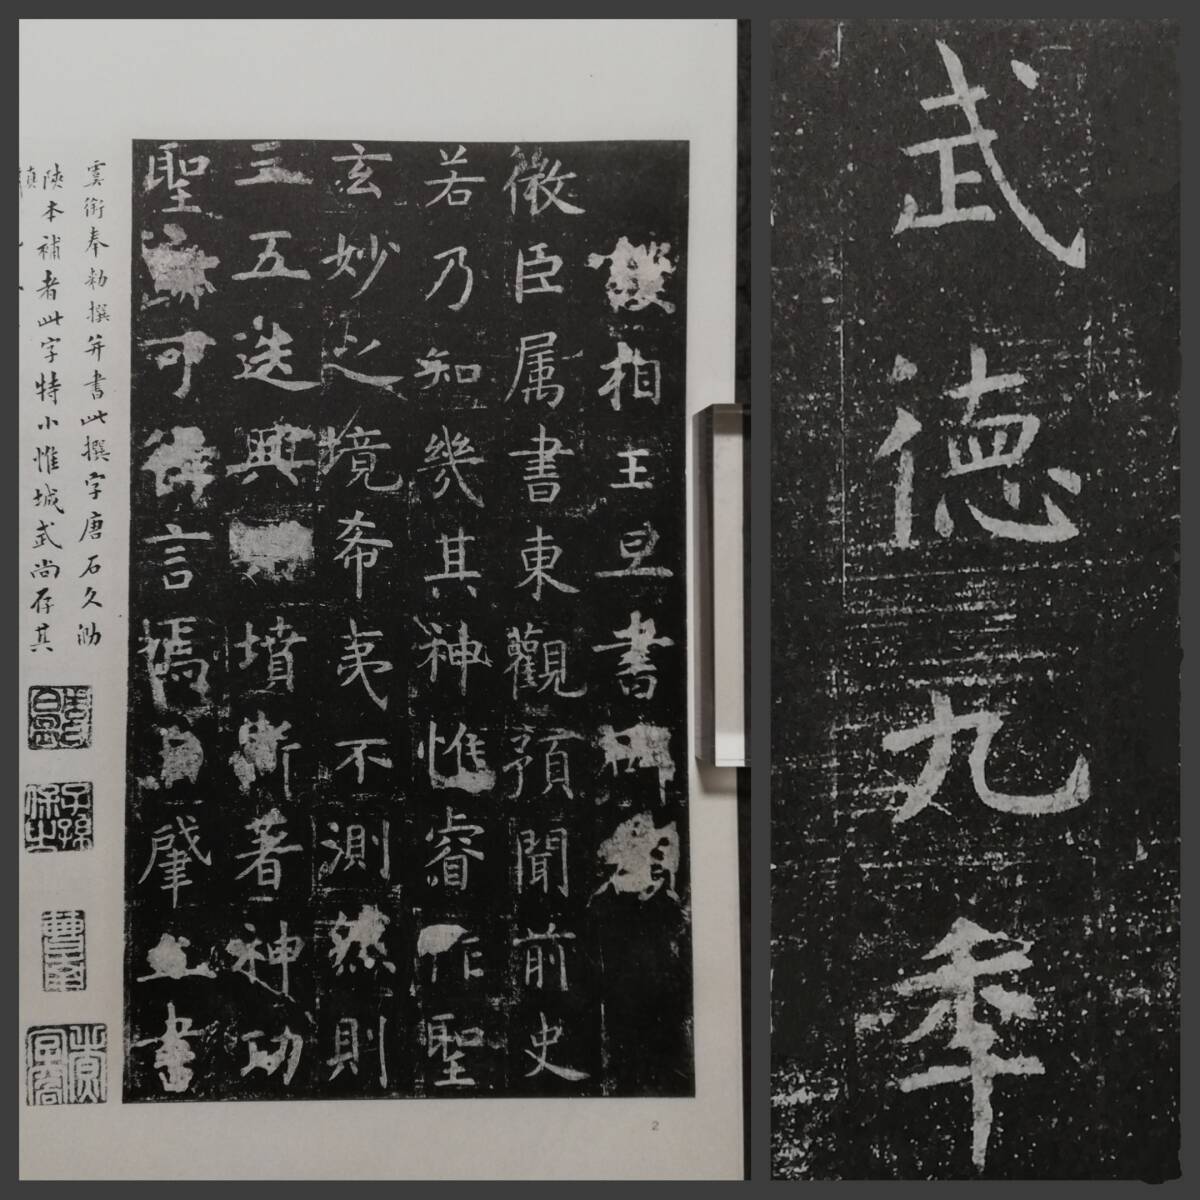 武德九年
護相王旦書碑額
微臣属書東觀預聞前史
若乃知幾其神惟睿作聖
玄妙之境希夷不測然則
三五迭興墳斯著神功
聖迹可得言焉自肇立書
虞街奉勅撰并書此撰字唐石久泐
陝本補者此字特小惟城武尚存其
真
子孫保之
2